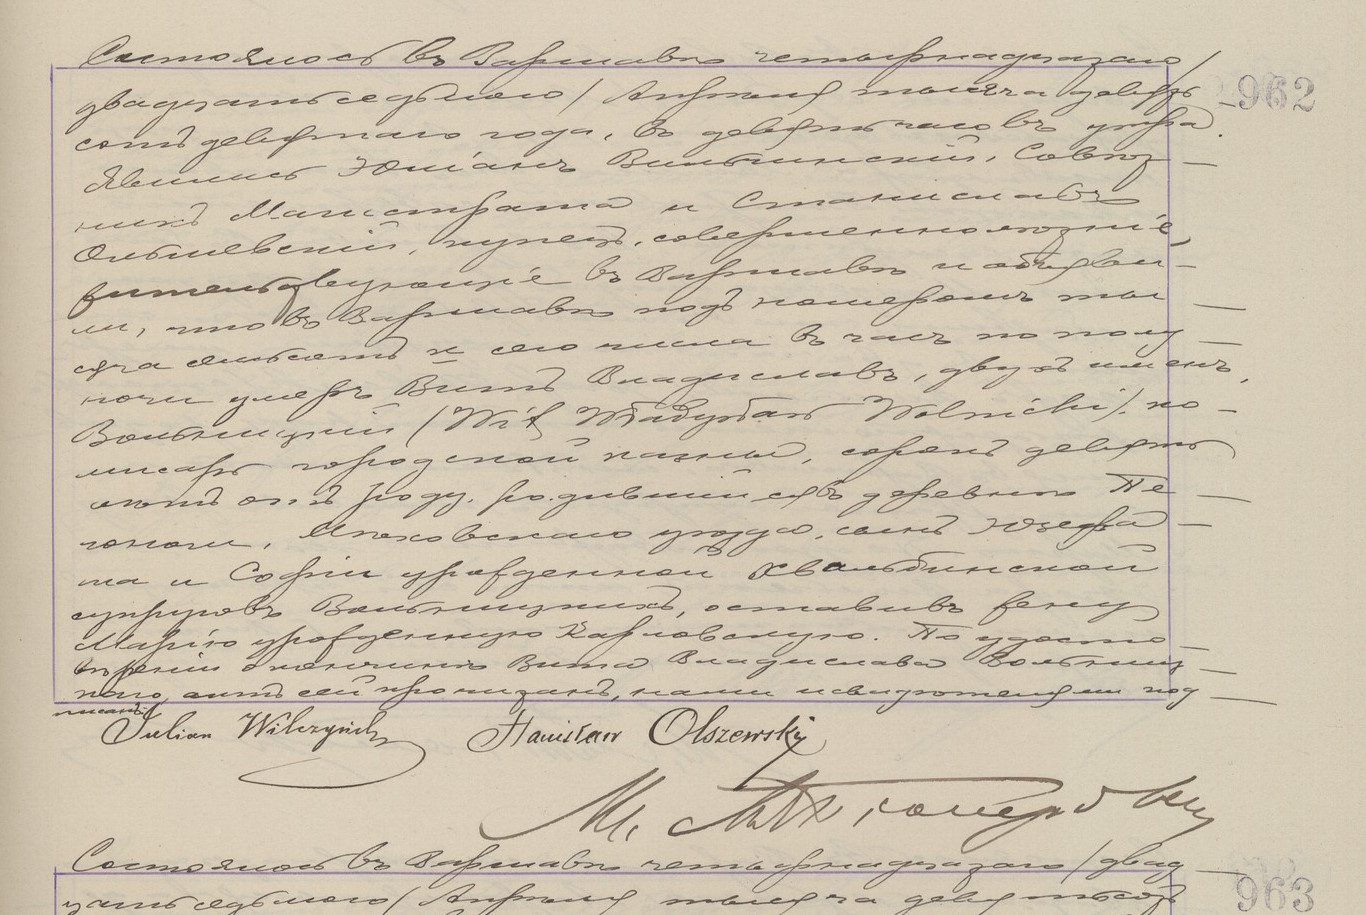 Состоялось въ Варшавѣ четырнадцатаго /
двадцать седьмого / Апрѣля тысяча девять
сотъ девятаго года, въ девять часовъ утра.
Явились Юліанъ Вильчинскій, Совѣт
никъ Магистрата и Станиславъ
Ольшевскій, купецъ, совершеннолѣтніе,
жительствующіе въ Варшавѣ и объяви-
ли, что въ Варшавѣ подъ номеромъ тыся
сего числа въ часъ по полу
ночи умеръ Витъ Владиславъ, двухъ именъ,
Вольницкій / Wit Władysław Wolnicki /, ко-
мисаръ городской казны, сорокъ девять
лѣтъ отъ роду, родившійся въ деревнѣ Пе
Мѣховскаго уѣзда, сынъ Юзефа
та и Софіи урожденной Хвалибинской
супруговъ Вольницкихъ, оставивъ жену
Марію урожденную Карловскую. По удосто
вѣреніи о кончинѣ Вита Владислава Вольниц
каго, актъ сей прочитанъ, нами и свидѣтелями под
писанъ.
Julian Wilczyński Stanisław Olszewsky
962
Состоялось въ Варшавѣ четырнадцатаго / двад
цать седьмого / Апрѣля тысяча девятьсотъ
963